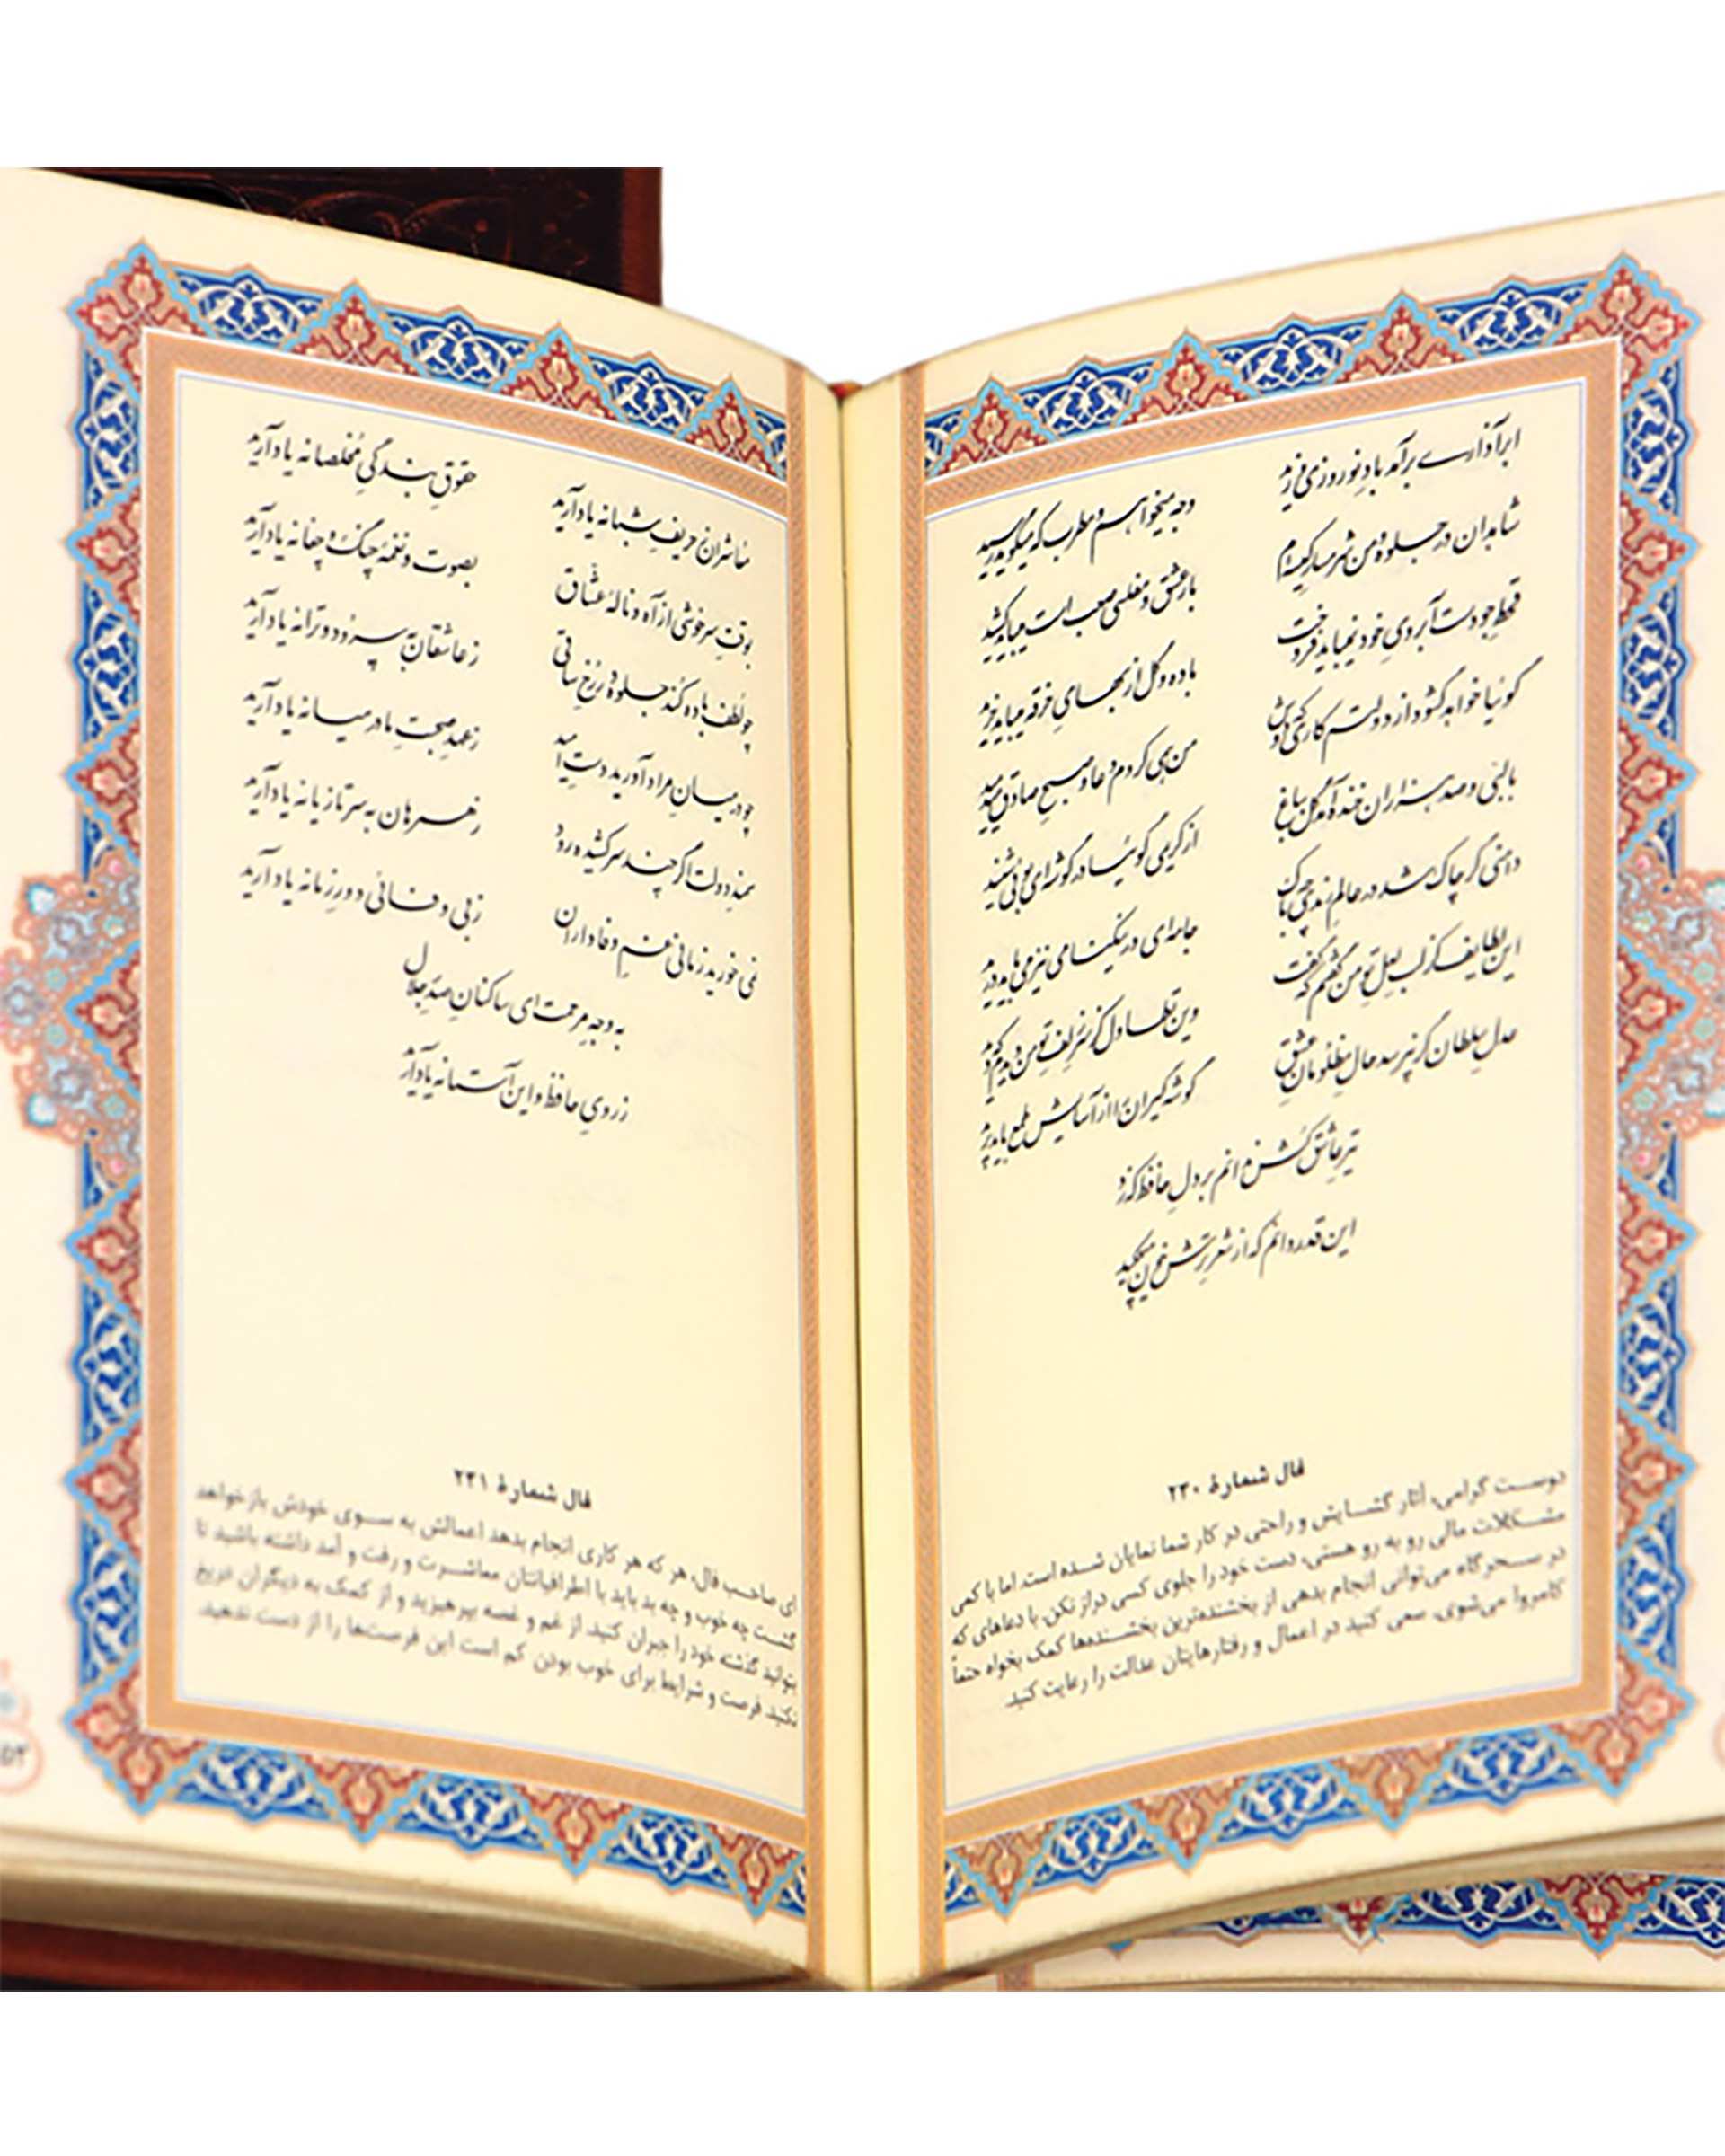 ابر آذاری برآمد باد نوروزی وزید
وجه می‌خواهم و مطرب که می‌گوید رسید
شاهدان در جلوه و من شرمسار کیسه‌ام
بار عشق و مفلسی صعب است می‌باید کشید
قحط جودست آبروی خود نمی‌باید فروخت
باده و گل از بهای خرقه می‌باید خرید
گوئیا خواهد گشود از دولتم کاری که دوش
من همی کردم دعا و صبح صادق می‌دمید
با لبی و صد هزاران خنده آمد گل بباغ
از کریمی گوئیا در گوشه‌ای بوئی شنید
دامنی گر چاک شد در عالم رندی چه باک
جامه‌ای در نیکنامی نیز می‌باید درید
این لطایف کز لب لعل تو من گفتم که گفت
وین تطاول کز سر زلف تو من دیدم که دید
عدل سلطان گر نپرسد حال مظلومان عشق
گوشه گیران را از آسایش طمع باید برید
تیر عاشق کش ندانم بر دل حافظ که زد
این قدر دانم که از شعر ترش خون می‌چکید
فال شمارهٔ ۲۳۰
دوست گرامی، آثار گشایش و راحتی در کار شما نمایان شده است. اما با کمی
مشکلات مالی رو به رو هستی، دست خود را جلوی کسی دراز نکن. با دعاهای که
در سحرگاه می‌توانی انجام بدهی از بخشنده‌ترین بخشنده‌ها کمک بخواه حتماً
کامروا می‌شوی. سعی کنید در اعمال و رفتارهایتان عدالت را رعایت کنید.
معاشران ز حریف شبانه یاد آرید
حقوق بندگی مخلصانه یاد آرید
بوقت سرخوشی از آه و نالهٔ عشاق
بصوت و نغمهٔ چنگ و چغانه یاد آرید
چو لطف باده کند جلوه در رخ ساقی
ز عاشقان به سرود و ترانه یاد آرید
چو در میان مراد آورید دست امید
ز عهد صحبت ما در میانه یاد آرید
سمند دولت اگر چند سرکشیده رود
ز همرهان به سر تازیانه یاد آرید
نمی خورید زمانی غم وفاداران
ز بی وفائی دور زمانه یاد آرید
به وجه مرحمت ای ساکنان صدر جلال
ز روی حافظ و این آستانه یاد آرید
فال شمارهٔ ۲۳۱
ای صاحب فال، هر که هر کاری انجام بدهد اعمالش به سوی خودش باز خواهد
گشت چه خوب و چه بد باید با اطرافیانتان معاشرت و رفت و آمد داشته باشید تا
بتوانید گذشته خود را جبران کنید. از غم و غصه بپرهیزید و از کمک به دیگران دریغ
نکنید. فرصت و شرایط برای خوب بودن کم است این فرصت‌ها را از دست ندهید.